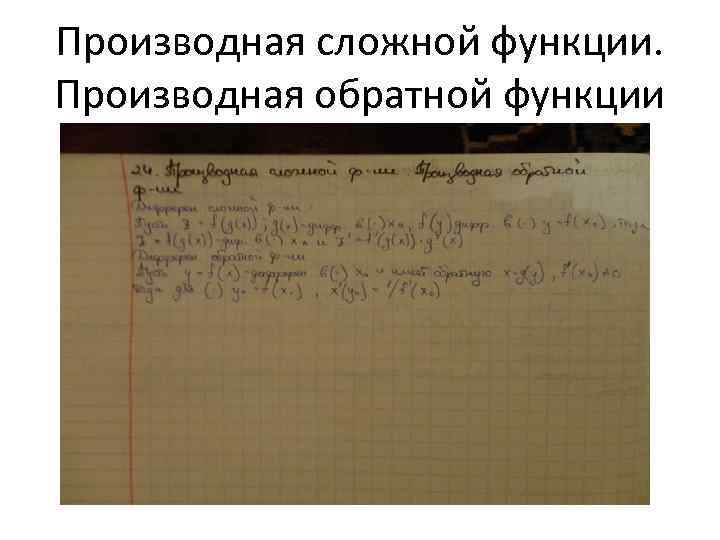 Производная сложной функции.
Производная обратной функции
24. Производная сложной ф-ии. Производная обратной
ф-ии
Дифферен сложной ф-ии:
Пусть z = f(g(x)); g(x)-дифф. в(·) x₀, f(y) дифф. в(·) y=f(x₀), тогда
z = f(g(x))-диф. в(·) x₀ и z' = f'(g(x))·g'(x)
Дифферен обратной ф-ии
Пусть y = f(x)-дифферен в(·) x₀ и имеет обратную x=g(y), f'(x₀)≠0
тогда для (·) y₀=f(x₀), x'(y₀) = 1/f'(x₀)